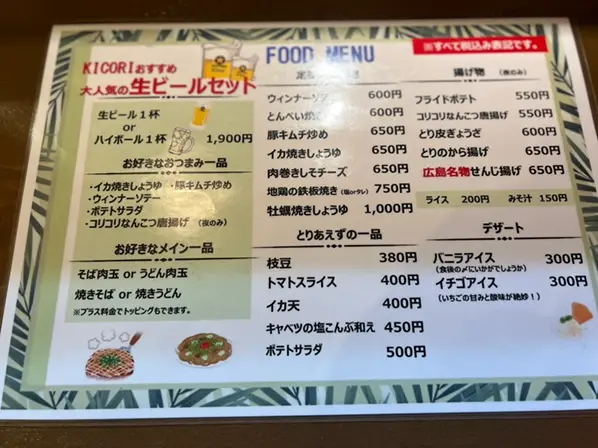 KICORIおすすめ
大人気の生ビールセット
生ビール1杯
or
ハイボール1杯
1,900円
お好きなおつまみ一品
・イカ焼きしょうゆ ・豚キムチ炒め
・ウィンナーソテー
・ポテトサラダ
・コリコリなんこつ唐揚げ (夜のみ)
お好きなメイン一品
そば肉玉 or うどん肉玉
焼きそば or 焼きうどん
※プラス料金でトッピングもできます。
FOOD MENU
※すべて税込み表記です。
ウィンナーソテー 600円
とんぺい焼き 600円
豚キムチ炒め 650円
イカ焼きしょうゆ 650円
肉巻きしそチーズ 650円
地鶏の鉄板焼き(塩orタレ) 750円
牡蠣焼きしょうゆ 1,000円
とりあえずの一品
枝豆 380円
トマトスライス 400円
イカ天 400円
キャベツの塩こんぶ和え 450円
ポテトサラダ 500円
揚げ物 (夜のみ)
フライドポテト 550円
コリコリなんこつ唐揚げ 550円
とり皮ぎょうざ 600円
とりのから揚げ 650円
広島名物せんじ揚げ 650円
ライス 200円 みそ汁 150円
デザート
バニラアイス 300円
(食後の〆にいかがでしょうか)
イチゴアイス 300円
(いちごの甘みと酸味が絶妙!)